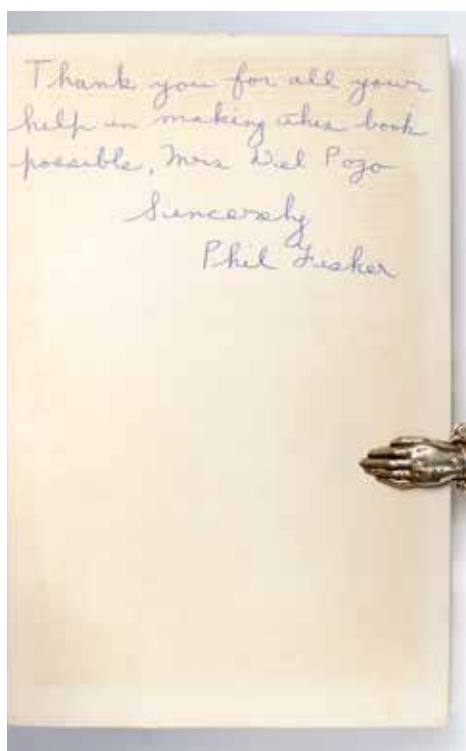 Thank you for all your
help in making this book
possible, Mrs Del Pozo
Sincerely
Phil Fisher